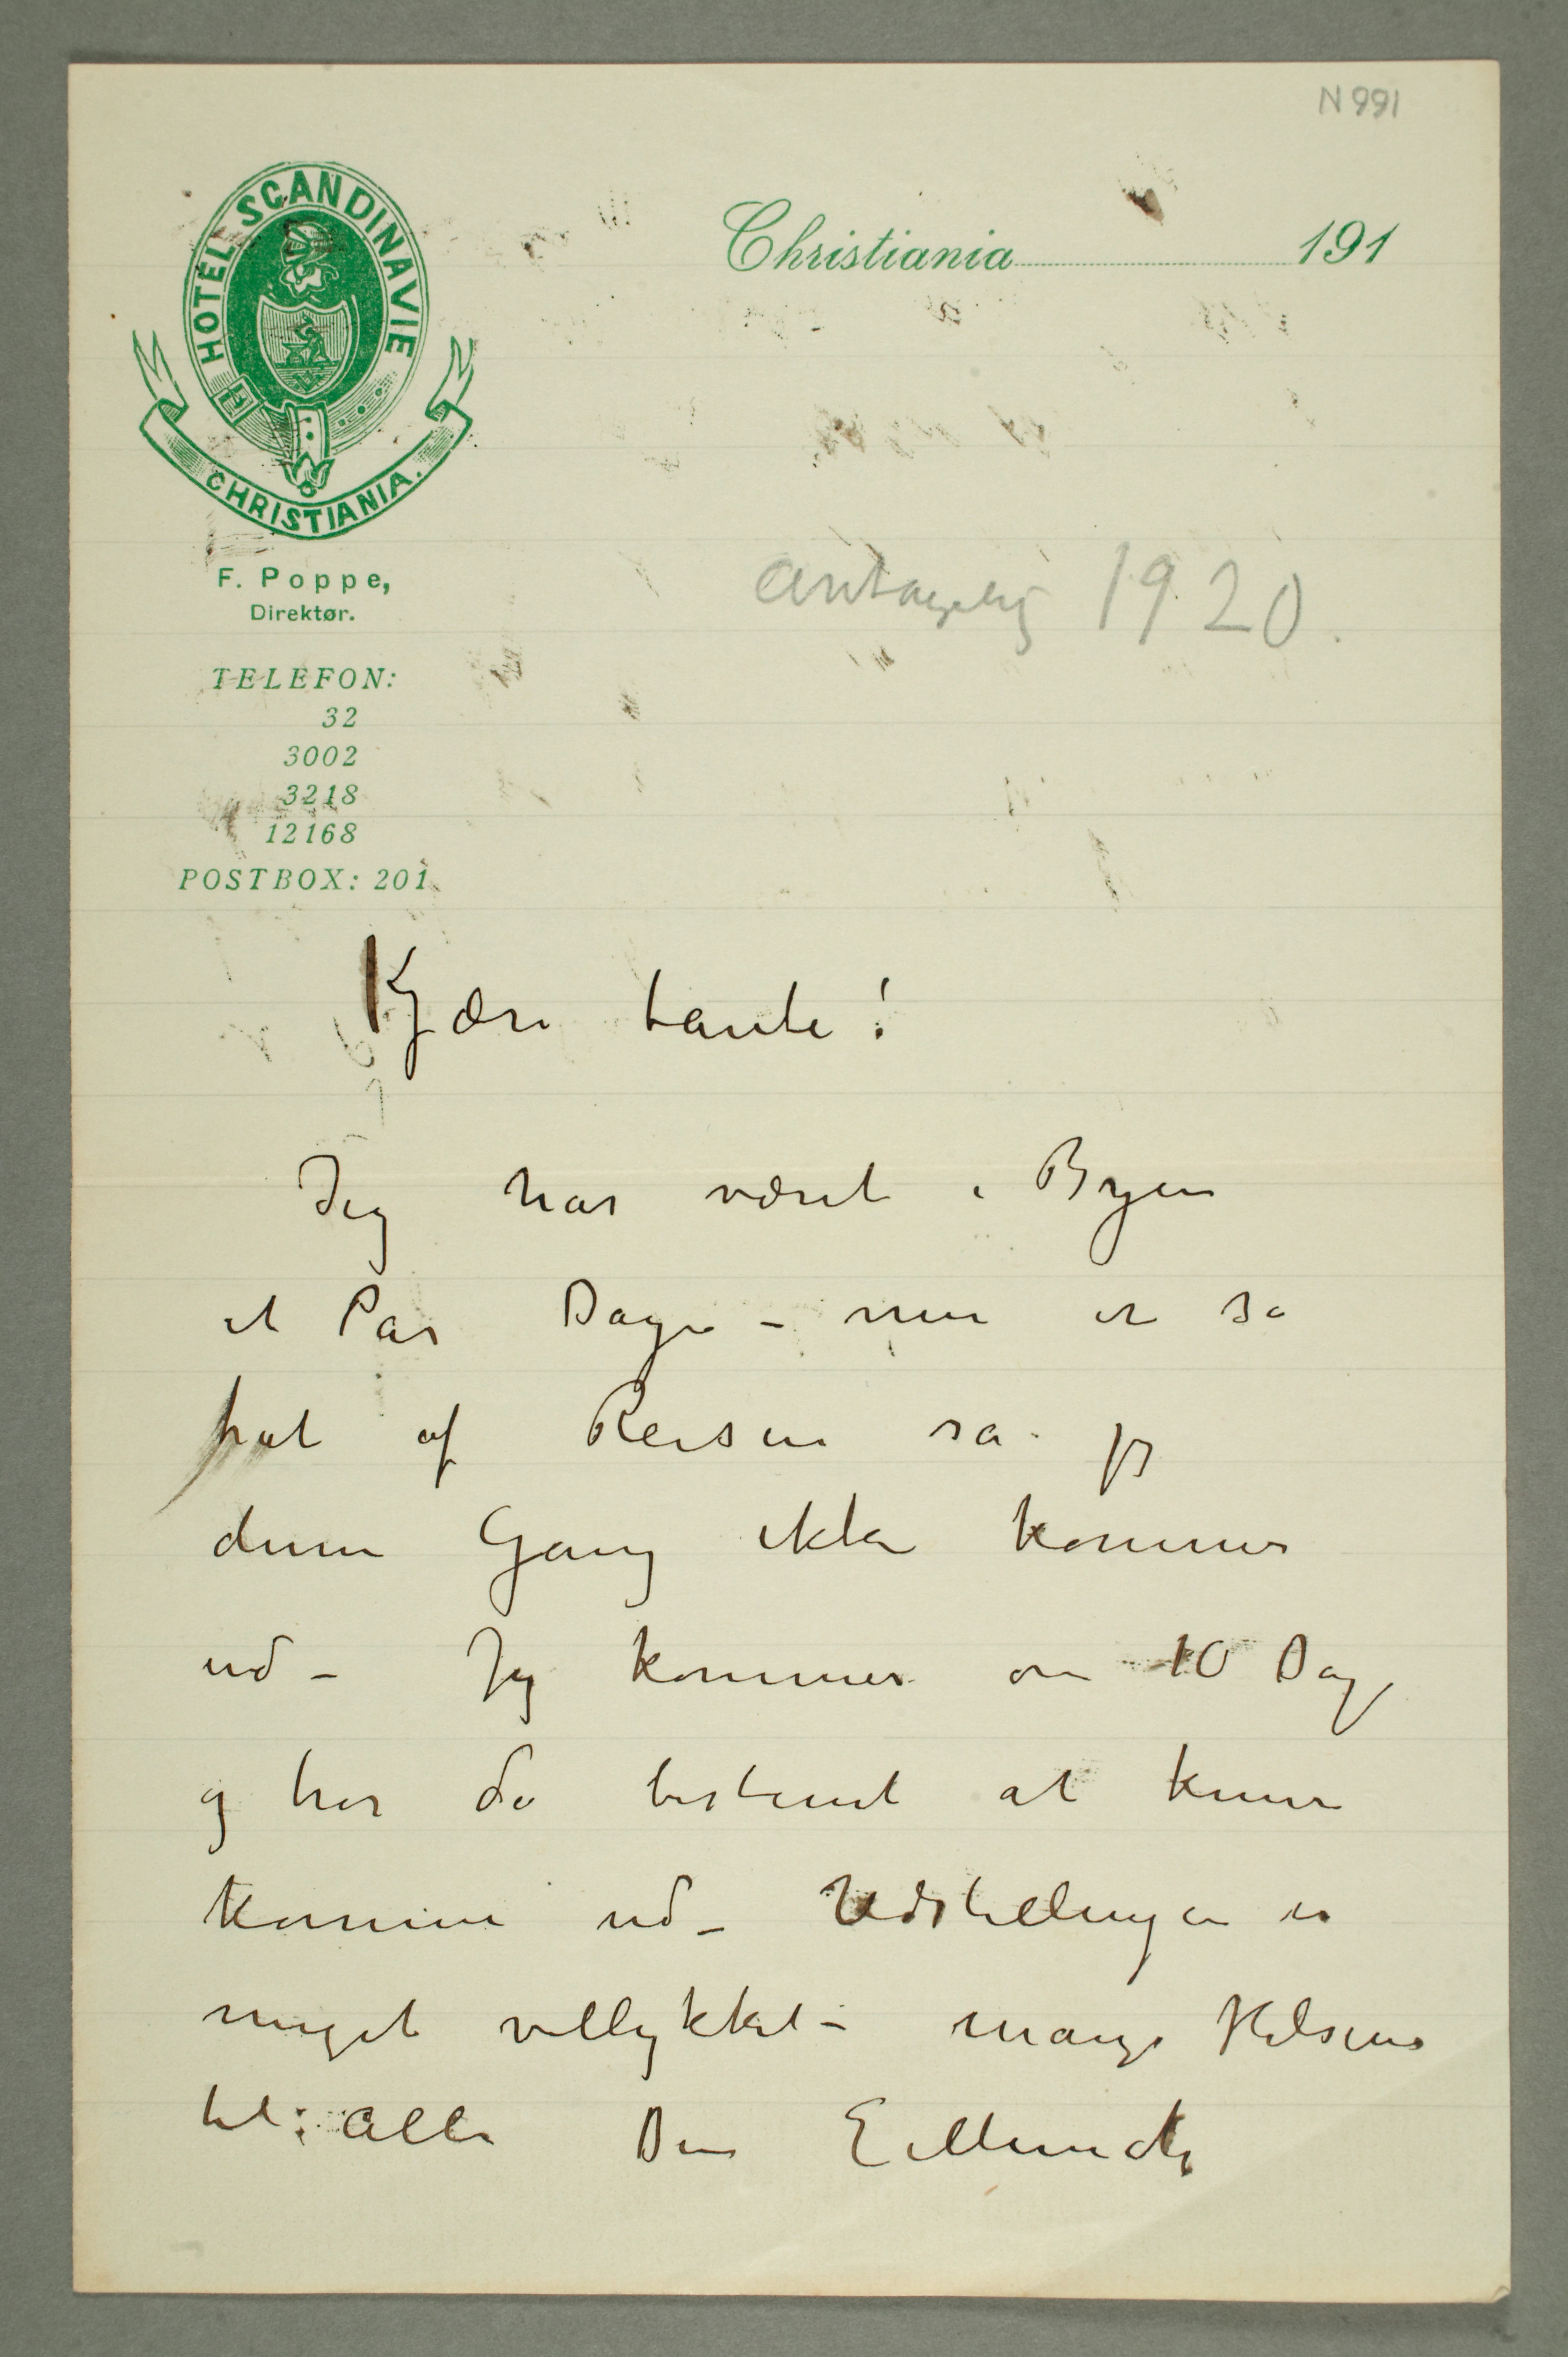 N 991
HOTEL SCANDINAVIE
CHRISTIANIA.
Christiania 191
F. Poppe,
Direktør.
antagelig 1920.
TELEFON:
32
3002
3218
12168
POSTBOX: 201.
Kjære tante!
Jeg har været i Byen
et Par Dage – men er så
træt af Reisen så jeg
denne Gang ikke kommer
ud – Jeg kommer om 10 Dage
og tror da bestemt at kunne
komme ud – Udstillingen er
meget vellykket – mange Hilsener
til alle Din E Munch